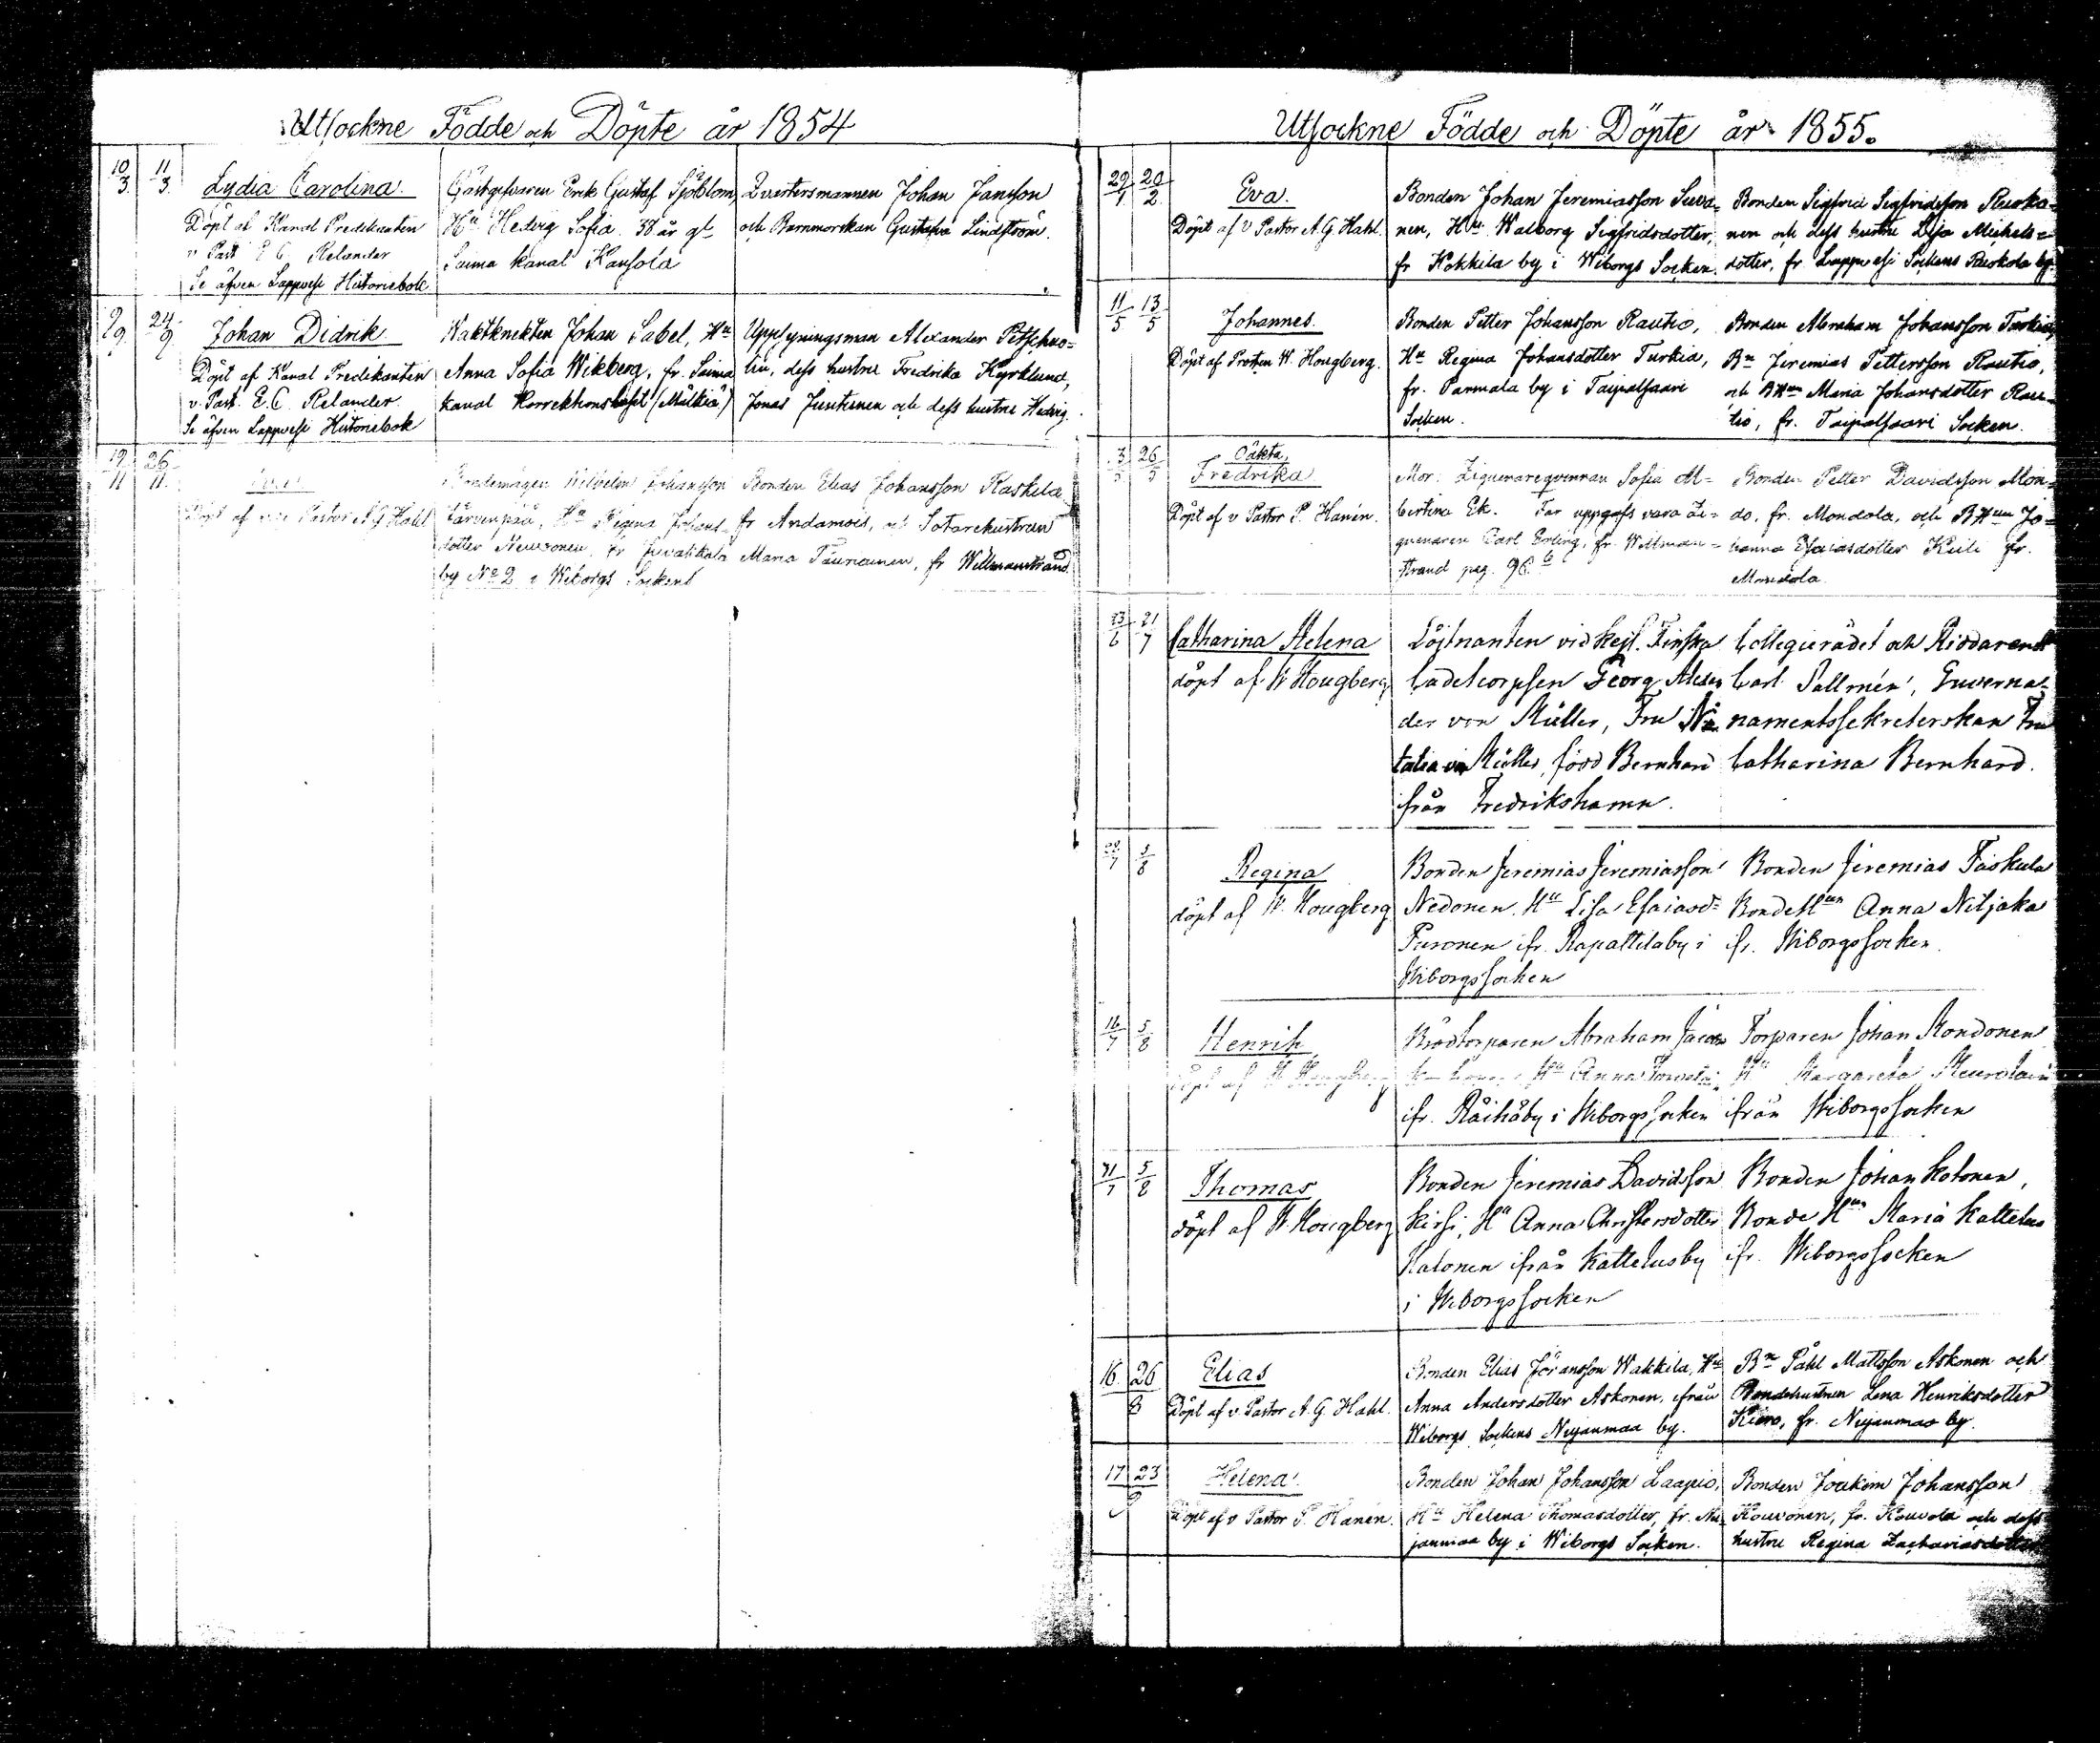 Utsockne Födde och Döpte år 1854
10/3 11/3 Lydia Carolina.
Döpt af Kanal Predikanten
v Past E. C. Relander
Se äfven Lappvesi Historiebok
Gästgifvaren Erik Gustaf Sjöblom,
Hu Hedvig Sofia. 38 år gl
Saima kanal Kansola
Qvartersmannen Johan Jansson
och Barnmorskan Gustafva Lindström.
9/9 24/9 Johan Didrik
Döpt af Kanal Predikanten
v. Past. E. C. Relander.
Se äfven Lappvesi Historiebok
Waktknekten Johan Sabel, Hu
Anna Sofia Wikberg, fr. Saima
kanal Korrektions (Mälkiä)
Uppsyningsman Alexander
dess hustru Fredrika Kyrklund,
Jonas Juntunen och dess hustru Hedvig.
19/11 26/11
Döpt af vice Pastor A. G. Hahl
Wilhelm Johansson
Järvenpää, Hu Regina Johans
dotter Neuvonen, fr Juvatikula
by No 2 i Wiborgs Sockent
Bonden Elias Johansson Kaskela
fr Andamois, och Sotarehustrun
Maria Tiurianen, fr Willmanstrand
Utsockne Födde och Döpte år 1855.
29/1 20/2 Eva.
Döpt af v Pastor A. G. Hahl.
Bonden Johan Jeremiasson Suva=
nen, Hu Walborg Sigfridsdotter,
fr Kokkila by i Wiborgs Socken.
Bonden Sigfrid Sigfridsson Ruoka=
nen och dess hustru Lisa Michels=
dotter, fr. Lappvesi Sockens by.
11/5 13/5 Johannes.
Döpt af Prosten W. Hougberg.
Bonden Petter Johansson Rautio,
Hu Regina Johansdotter Turkia,
fr. Pannala by i Taipalsaari
Socken.
Bonden Abraham Johansson Turkia,
Bn Jeremias Pettersson Rautio,
och BHun Maria Johansdotter Rau=
tio, fr. Taipalsaari Socken.
3/5 26/5 Oäkta,
Fredrika
Döpt af v Pastor P. Hanén.
Mor: Ziguenareqvinnan Sofia Al=
bertina Ek. Far uppgifs vara Zi=
guenaren Carl Erling, fr. Willman=
strand pag. 96.b
Bonden Petter Davidsson Mon=
do, fr. Mondola, och BHun Jo=
hanna Esaiasdotter Keili fr.
Mondola
23/6 21/7 Catharina Helena
döpt af W Hougberg
Löjtnanten vid Kejs. Finska
Cadetcorpsen Georg Alexan
der von Müller, Fru Na
talia von Müller, född Bernhard
ifrån Fredrikshamn.
Collegierådet och Riddaren
Carl Sallmén, Guverna=
namentssekreterskan Fru
Catharina Bernhard.
28/7 5/8 Regina
döpt af W. Hougberg
Bonden Jeremias Jeremiasson
Nedonen. Hu Lisa Esaiasd=
Puronen ifr. Rapattilaby i
Wiborgssocken
Bonden Jeremias Taskula
BondeHun Anna Niljaka
fr. Wiborgssocken.
16/7 5/8 Henrik
döpt af W Hougberg
Brödtorparen Abraham
Hu Anna
ifr. Räihäby i Wiborgssocken
Torparen Johan Rondonen
Hu Margareta
ifrån Wiborgssocken
31/7 5/8 Thomas
döpt af W Hougberg
Bonden Jeremias Davidsson
Kirsi, Hu Anna Christersdotter
Hatonen ifrån Kattelusby
i Wiborgssocken
Bonden Johan Kotonen,
Bonde Hun Maria Kattelus
ifr. Wiborgssocken
16 26/8 Elias
Döpt af v Pastor A. G. Hahl.
Bonden Elias Jöransson Wakkila, Hu
Anna Andersdotter Askonen, ifrån
Wiborgs Sockens Nuijanmaa by.
Bn Påhl Mattsson Askonen och
Bondehustrun Lena Henriksdotter
Kiuro, fr. Nuijanmaa by.
17 23/9 Helena.
Döpt af v Pastor P. Hanén.
Bonden Johan Johansson Laapio,
Hu Helena Thomasdotter, fr. Nu
janmaa by i Wiborgs Socken.
Bonden Joakim Johansson
Kouvonen, fr. Kouvola och dess
hustru Regina Zachariasdotter